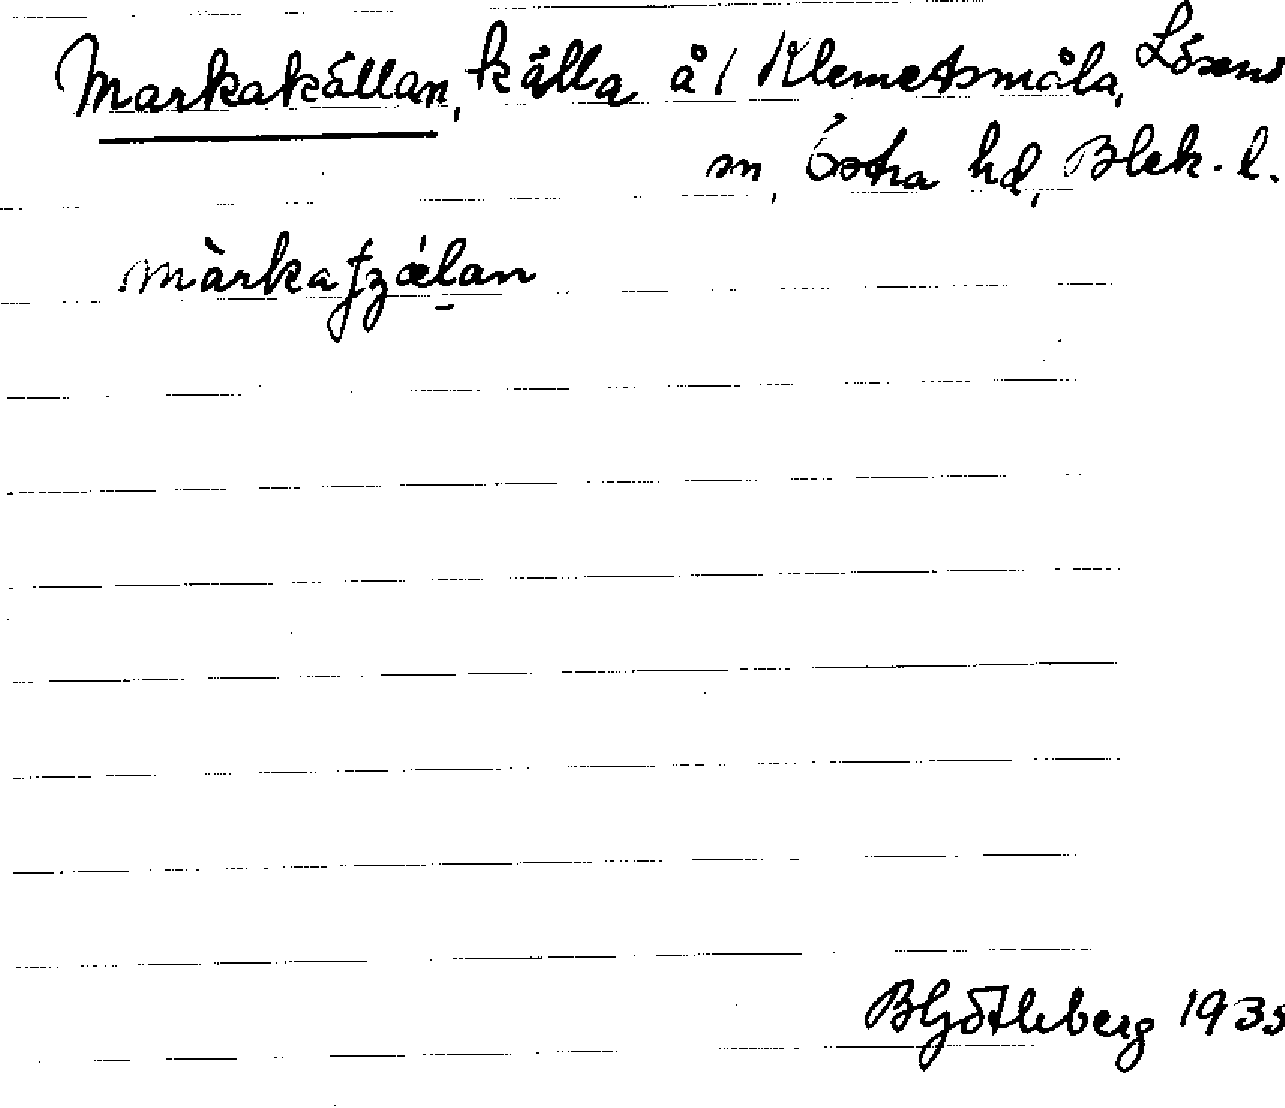 Markakällan, källa å / Klemetsmåla, Lösens
sn, Östra hd, Blek. l.
màrkaʃzǽlan
B Götleberg 1935